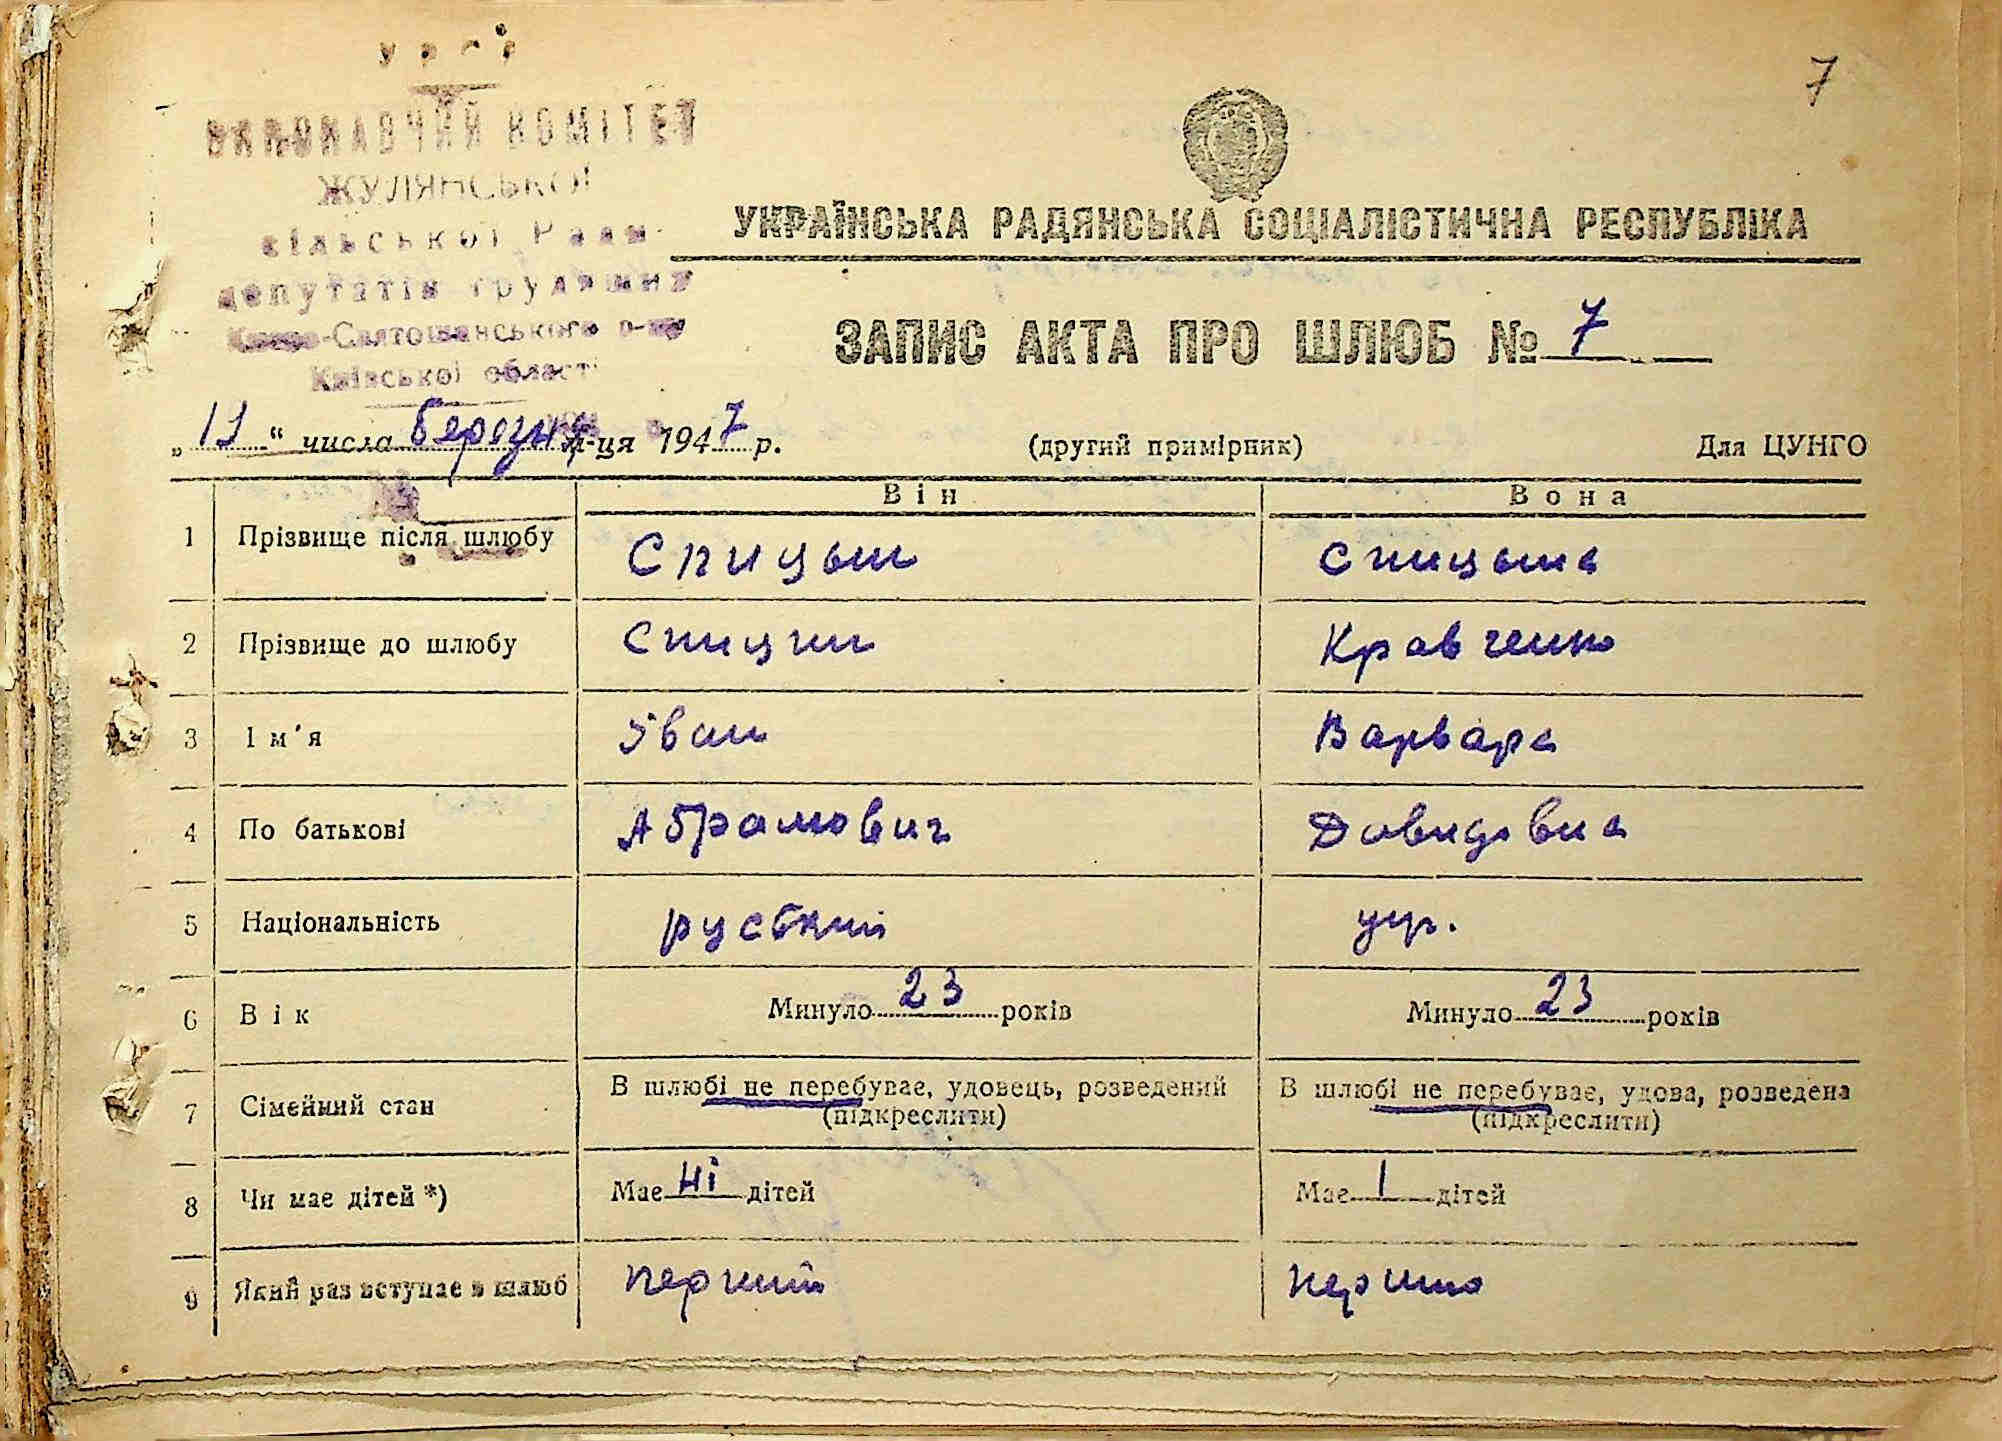 7
УРСР
ВИКОНАВЧИЙ КОМІТЕТ
ЖУЛЯНСЬКОЇ
сільської Ради
депутатів трудящих
Києво-Святошинського р-ну
Київської області
УКРАЇНСЬКА РАДЯНСЬКА СОЦІАЛІСТИЧНА РЕСПУБЛІКА
ЗАПИС АКТА ПРО ШЛЮБ № 7
„ 11 “ числа березня м-ця 1947 р. (другий примірник) Для ЦУНГО
Він Вона
1 Прізвище після шлюбу Спицын Спицына
2 Прізвище до шлюбу Спицин Кравченко
3 Ім'я Іван Варвара
4 По батькові Абрамович Давидовна
5 Національність руський укр.
6 Вік Минуло 23 років Минуло 23 років
7 Сімейний стан В шлюбі не перебуває, удовець, розведений (підкреслити) В шлюбі не перебуває, удова, розведена (підкреслити)
8 Чи має дітей *) Має ні дітей Має 1 дітей
9 Який раз вступає в шлюб перший перший